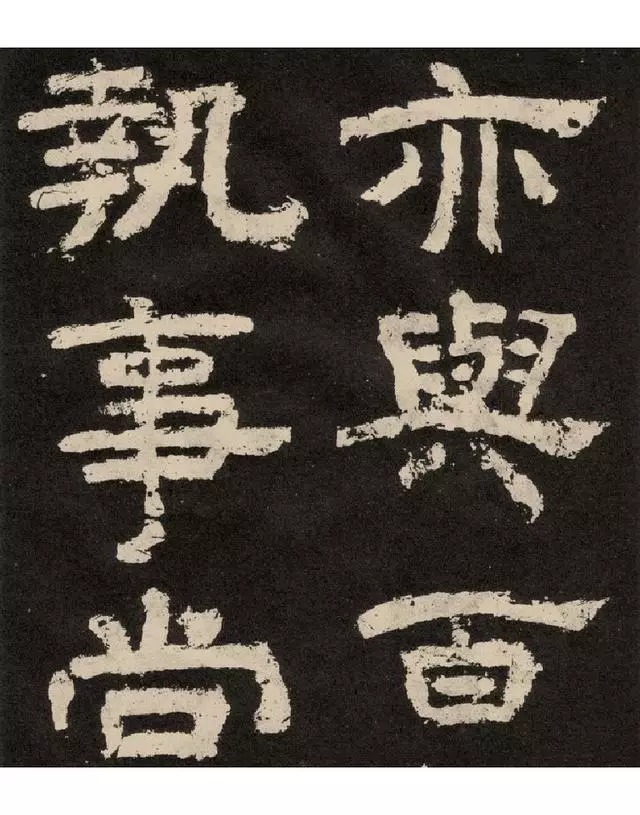 亦與百
執事尚